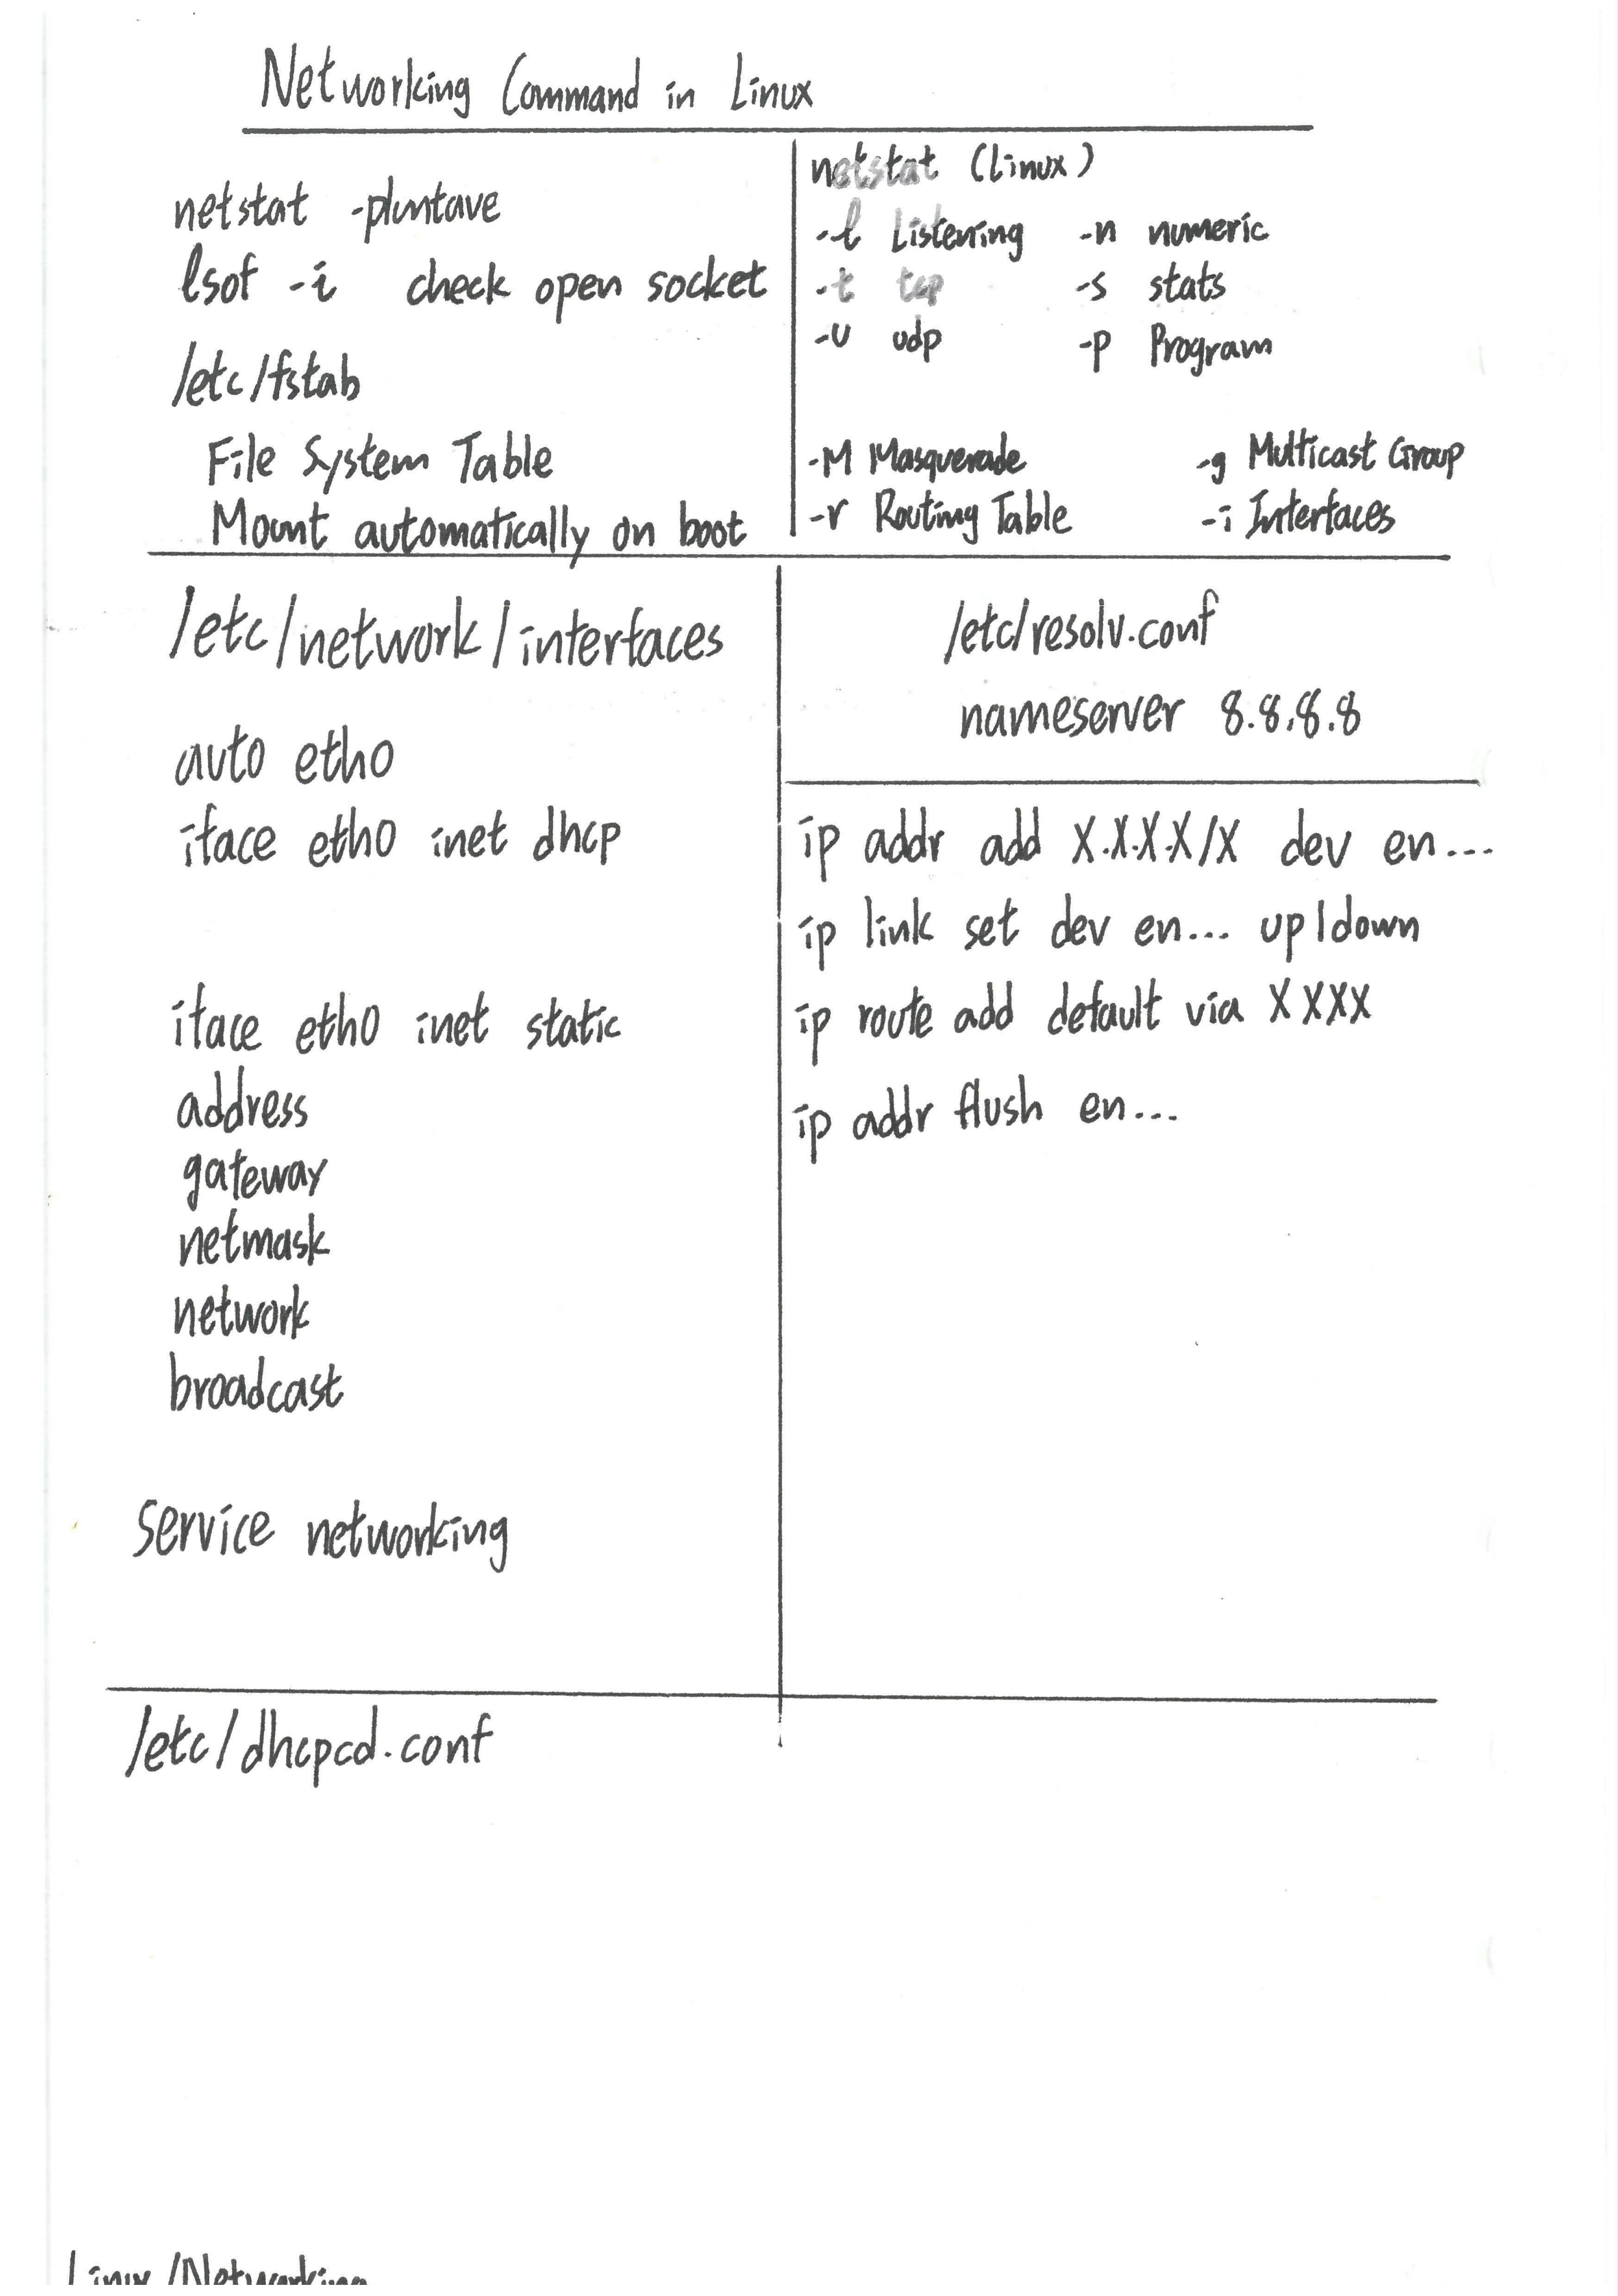 Networking Command in Linux
netstat -pluntave
lsof -i check open socket
/etc/fstab
File System Table
Mount automatically on boot
netstat (Linux)
-l Listening -n numeric
-t tcp -s stats
-u udp -p Program
-M Masquerade -g Multicast Group
-r Routing Table -i Interfaces
/etc/network/interfaces
auto eth0
iface eth0 inet dhcp
iface eth0 inet static
address
gateway
netmask
network
broadcast
service networking
/etc/resolv.conf
nameserver 8.8.8.8
ip addr add X.X.X.X/X dev en...
ip link set dev en... up|down
ip route add default via X X X X
ip addr flush en...
/etc/dhcpcd.conf
Linux/Networking